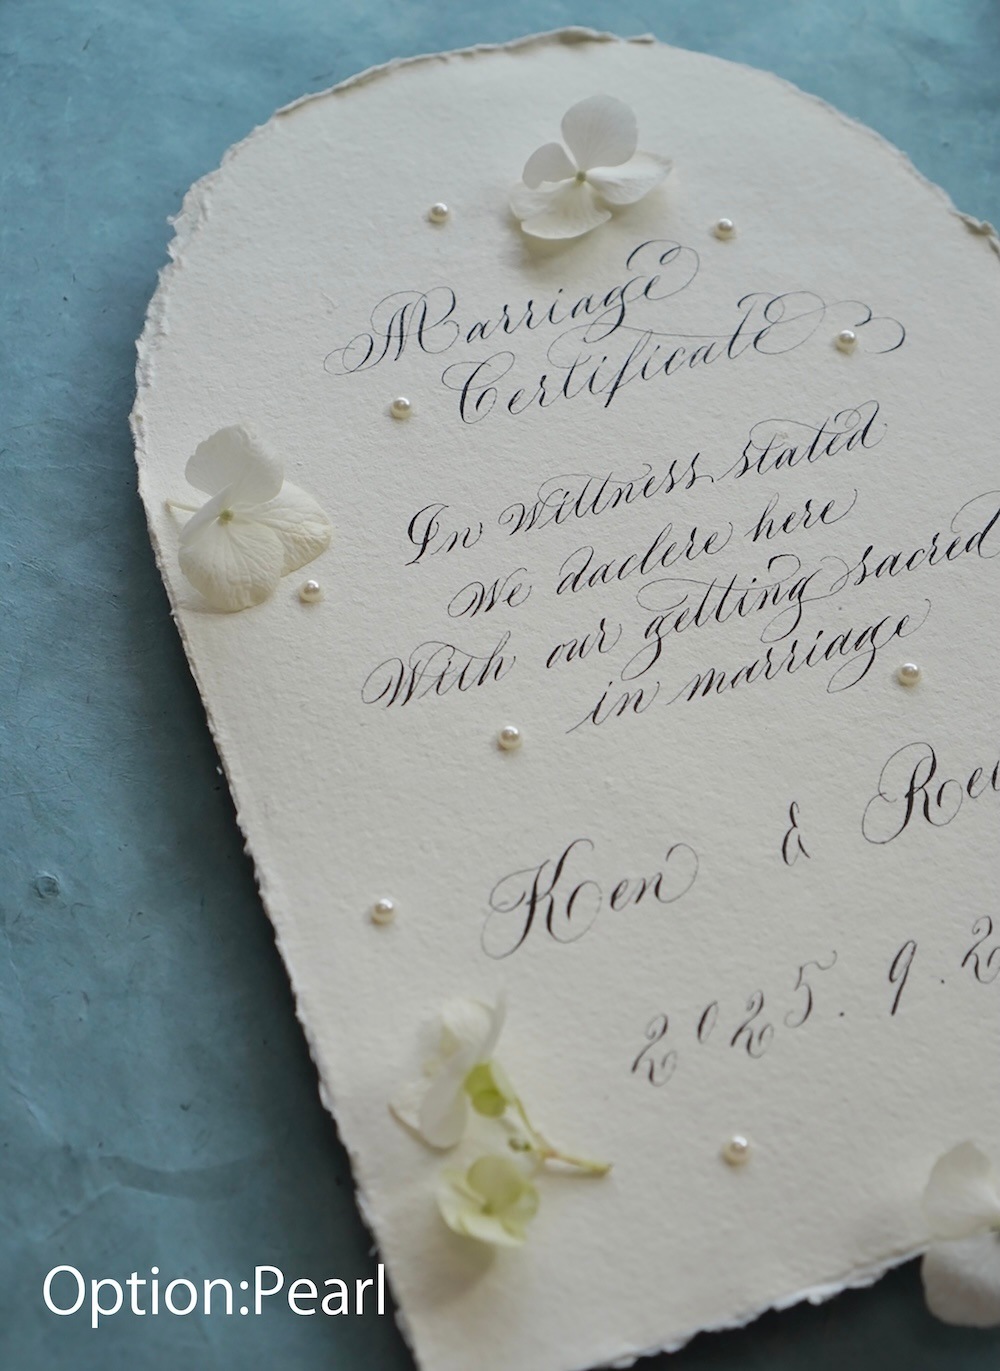 Marriage
Certificate
In Wittness stated
We daclere here
With our getting sacred
in marriage
Ken &
2025. 9.
Option:Pearl